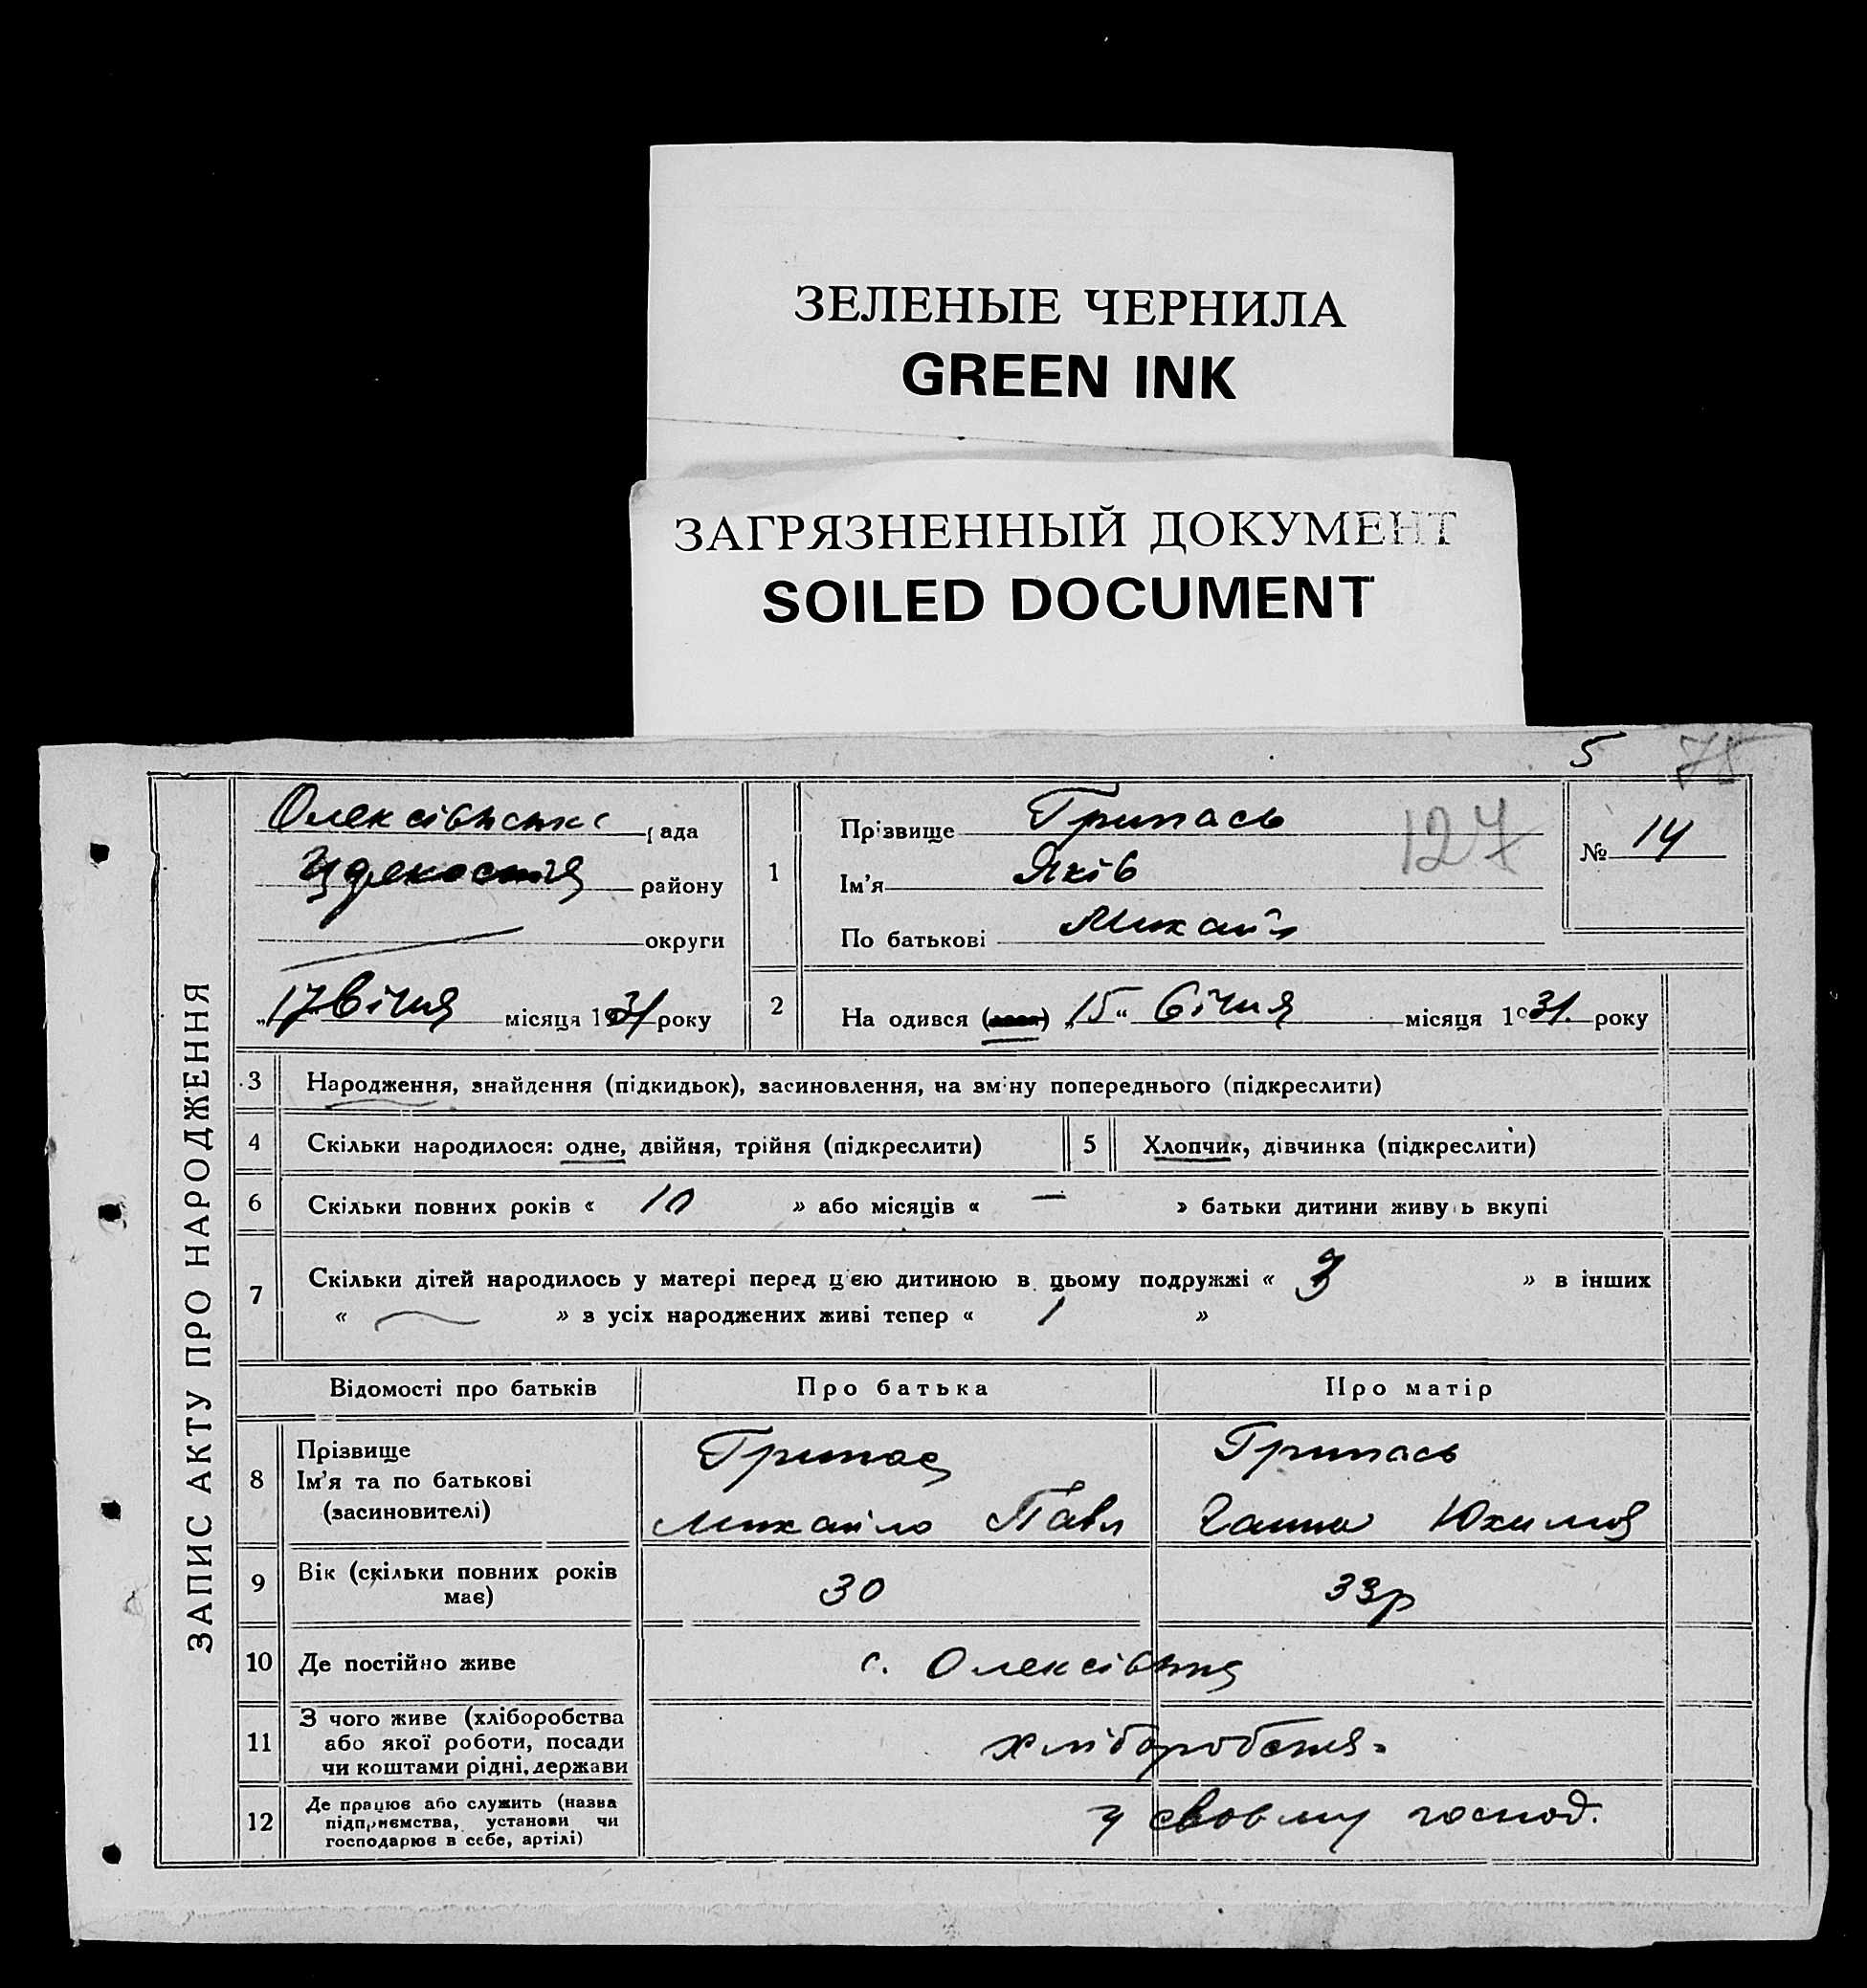 ЗЕЛЕНЫЕ ЧЕРНИЛА
GREEN INK
ЗАГРЯЗНЕННЫЙ ДОКУМЕНТ
SOILED DOCUMENT
5 75
ЗАПИС АКТУ ПРО НАРОДЖЕННЯ
Олексівська рада
району
округи
„17" січня місяця 1931 року
1
Прізвище Грипась
Ім'я Яків
По батькові Михайл
127
№ 14
2 На одився „15" січня місяця 1931. року
3 Народження, знайдення (підкидьок), засиновлення, на зміну попереднього (підкреслити)
4 Скільки народилося: одне, двійня, трійня (підкреслити)
5 Хлопчик, дівчинка (підкреслити)
6 Скільки повних років « 10 » або місяців « — » батьки дитини живу ь вкупі
7 Скільки дітей народилось у матері перед цією дитиною в цьому подружжі « 3 » в інших
« — » з усіх народжених живі тепер « 1 »
Відомості про батьків Про батька Про матір
8 Прізвище
Ім'я та по батькові
(засиновителі)
Грипась
Михайло Павл
Грипась
Ганна Юхимов
9 Вік (скільки повних років
має)
30 33р
10 Де постійно живе с. Олексівка
11 З чого живе (хліборобства
або якої роботи, посади
чи коштами рідні, держави
хліборобства
12 Де працює або служить (назва
підприємства, установи чи
господарює в себе, артілі)
у своєму господ.